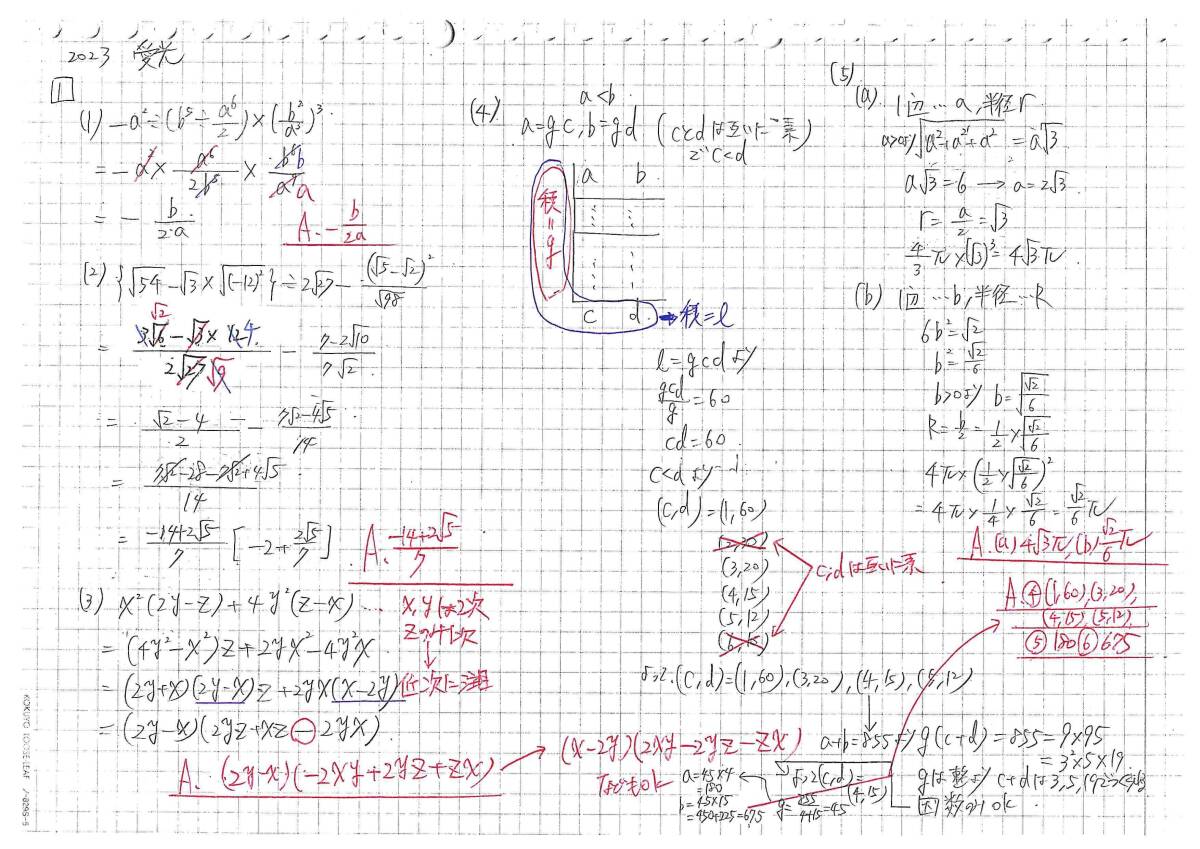 2023
1
(1) -a²÷(b⁵÷a⁶/2)×(b²/a³)³
= -a²×a⁶/2b⁵×b⁶b/a⁹a
= -b/2a
A. -b/2a
(2) {√54-√3×√(-12)²}÷2√27-(√5-√2)²/√98
= 3√6√2-√3×12 4/2√27√9 - 7-2√10/7√2
= √2-4/2 - 7√2-4√5/14
= 7√2-28-7√2+4√5/14
= -14+2√5/7 [-2+2√5/7]
A. -14+2√5/7
(3) x²(2y-z)+4y²(z-x)… x,yは2次
zだけ1次
= (4y²-x²)z+2yx²-4y²x
= (2y+x)(2y-x)z+2yx(x-2y) 低次に注目
= (2y-x)(2yz+xz-2yx)
A. (2y-x)(-2xy+2yz+zx)
(x-2y)(2xy-2yz-zx)
などもOK
(4) a<b
a=gc, b=gd (cとdは互いに素)
で c<d
a b
積=g
c d → 積=l
l=gcdより
gcd/g=60
cd=60
c<dより
(c,d)=(1,60)
(2,30)
(3,20)
(4,15)
(5,12)
(6,15)
c,dは互いに素
よって(c,d)=(1,60),(3,20),(4,15),(5,12)
a+b=855より g(c+d)=855=9×95
=3²×5×19
gは整より c+dは3,5,19
因数のみok
よって(c,d)=
(4,15)
g=855/4+15=45
a=45×4
=180
b=45×15
=450+225=675
(5)
(a) 1辺…a,半径r
a>0より√a²+a²+a²=a√3
a√3=6→a=2√3
r=a/2=√3
4/3π×(√3)³=4√3π
(b) 1辺…b,半径…R
6b²=√2
b²=√2/6
b>0より b=√√2/6
R=b/2=1/2×√√2/6
4π×(1/2×√√2/6)²
=4π×1/4×√2/6=√2/6π
A.(a)4√3π,(b)√2/6π
A.④(1,60),(3,20),
(4,15),(5,12)
⑤180⑥675
KOKUYO LOOSE LEAF